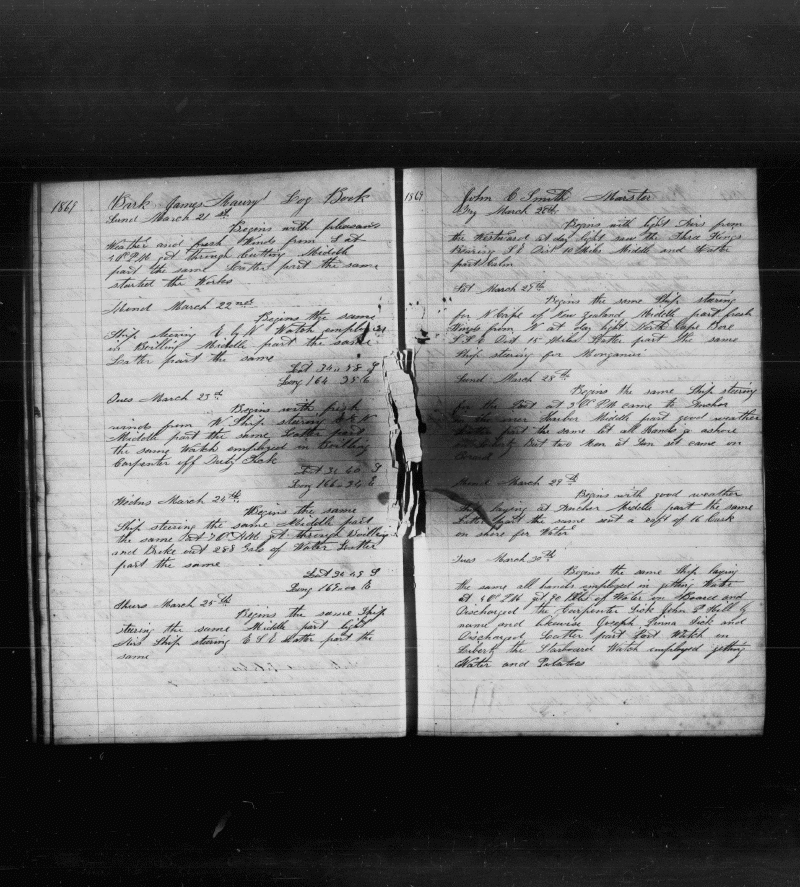 1869
Bark James Maury Log Book
Sund March 21 st
Begins with pleasant
Weather and fresh Winds from S at
4 Oc P.M. got through Cutting Middle
part the same Latter part the same
started the Works
Mond March 22 nd
Begins the same
Ship steering E by N Watch employ
in Boilling Middle part the same
Latter part the same
Lat 34..38 S
Long 164 38 E
Tues March 23 d
Begins with fresh
winds from W Ship steering E by N
Middle part the same Latter part
the same Watch employed in Boilling
Carpenter off Duty Sick
Lat 34 40 S
Long 166..34 E
Wedns March 24 th
Begins the same
Ship steering the same Middle part
the same at through Boilling
and Broke out 288 Gals of Water Latter
part the same
Lat 34 45 S
Long 169..00 E
Thurs March 25 th
Begins the same Ship
steering the same Middle part light
Airs Ship steering E S E Latter part the
same
1869
John C Smith Marster
Fry March 26 th
Begins with light Airs from
the Westward at day light saw the Third Kings
Bearing S E Dist 10 Miles Middle and Latter
part Calm
Sat March 27 th
Begins the same Ship steering
for N Cape of New Zealand Middle part fresh
Winds from W at day light North Cape Bore
S S E Dist 15 Miles Latter part the same
Ship steering for Monganui
Sund March 28 th
Begins the same Ship steering
for the Port at 3 Oc P.M. came to Anchor
in the river Harbor Middle part good weather
Latter part the same let all Hands go ashore
But two Men at Sun set came on
Board
Mond March 29 th
Begins with good weather
Ship laying at Anchor Middle part the same
Latter part the same sent a raft of 16 Cask
on shore for Water
Tues March 30 th
Begins the same Ship laying
the same all hands employed in getting Water
at 4 Oc P.M. got 90 Bbls of Water on Board and
Discharged the Carpenter Sick John P Hill by
name and likewise Joseph Sick and
Discharged Latter part Port Watch on
Liberty the Starboard Watch employed getting
Water and Potatoes